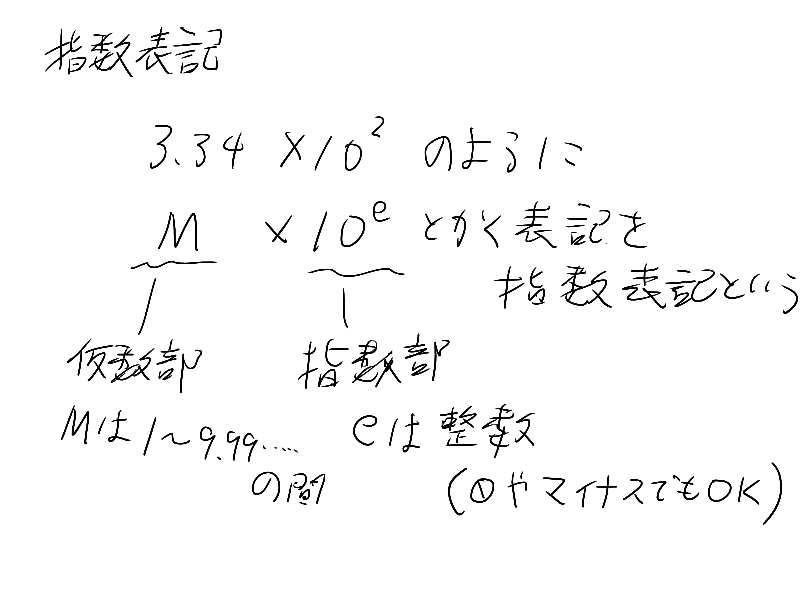 指数表記
3.34 ×10² のように
M ×10ᵉ とかく表記を
指数表記という
仮数部 指数部
Mは1〜9.99..... eは整数
の間 (0やマイナスでもOK)